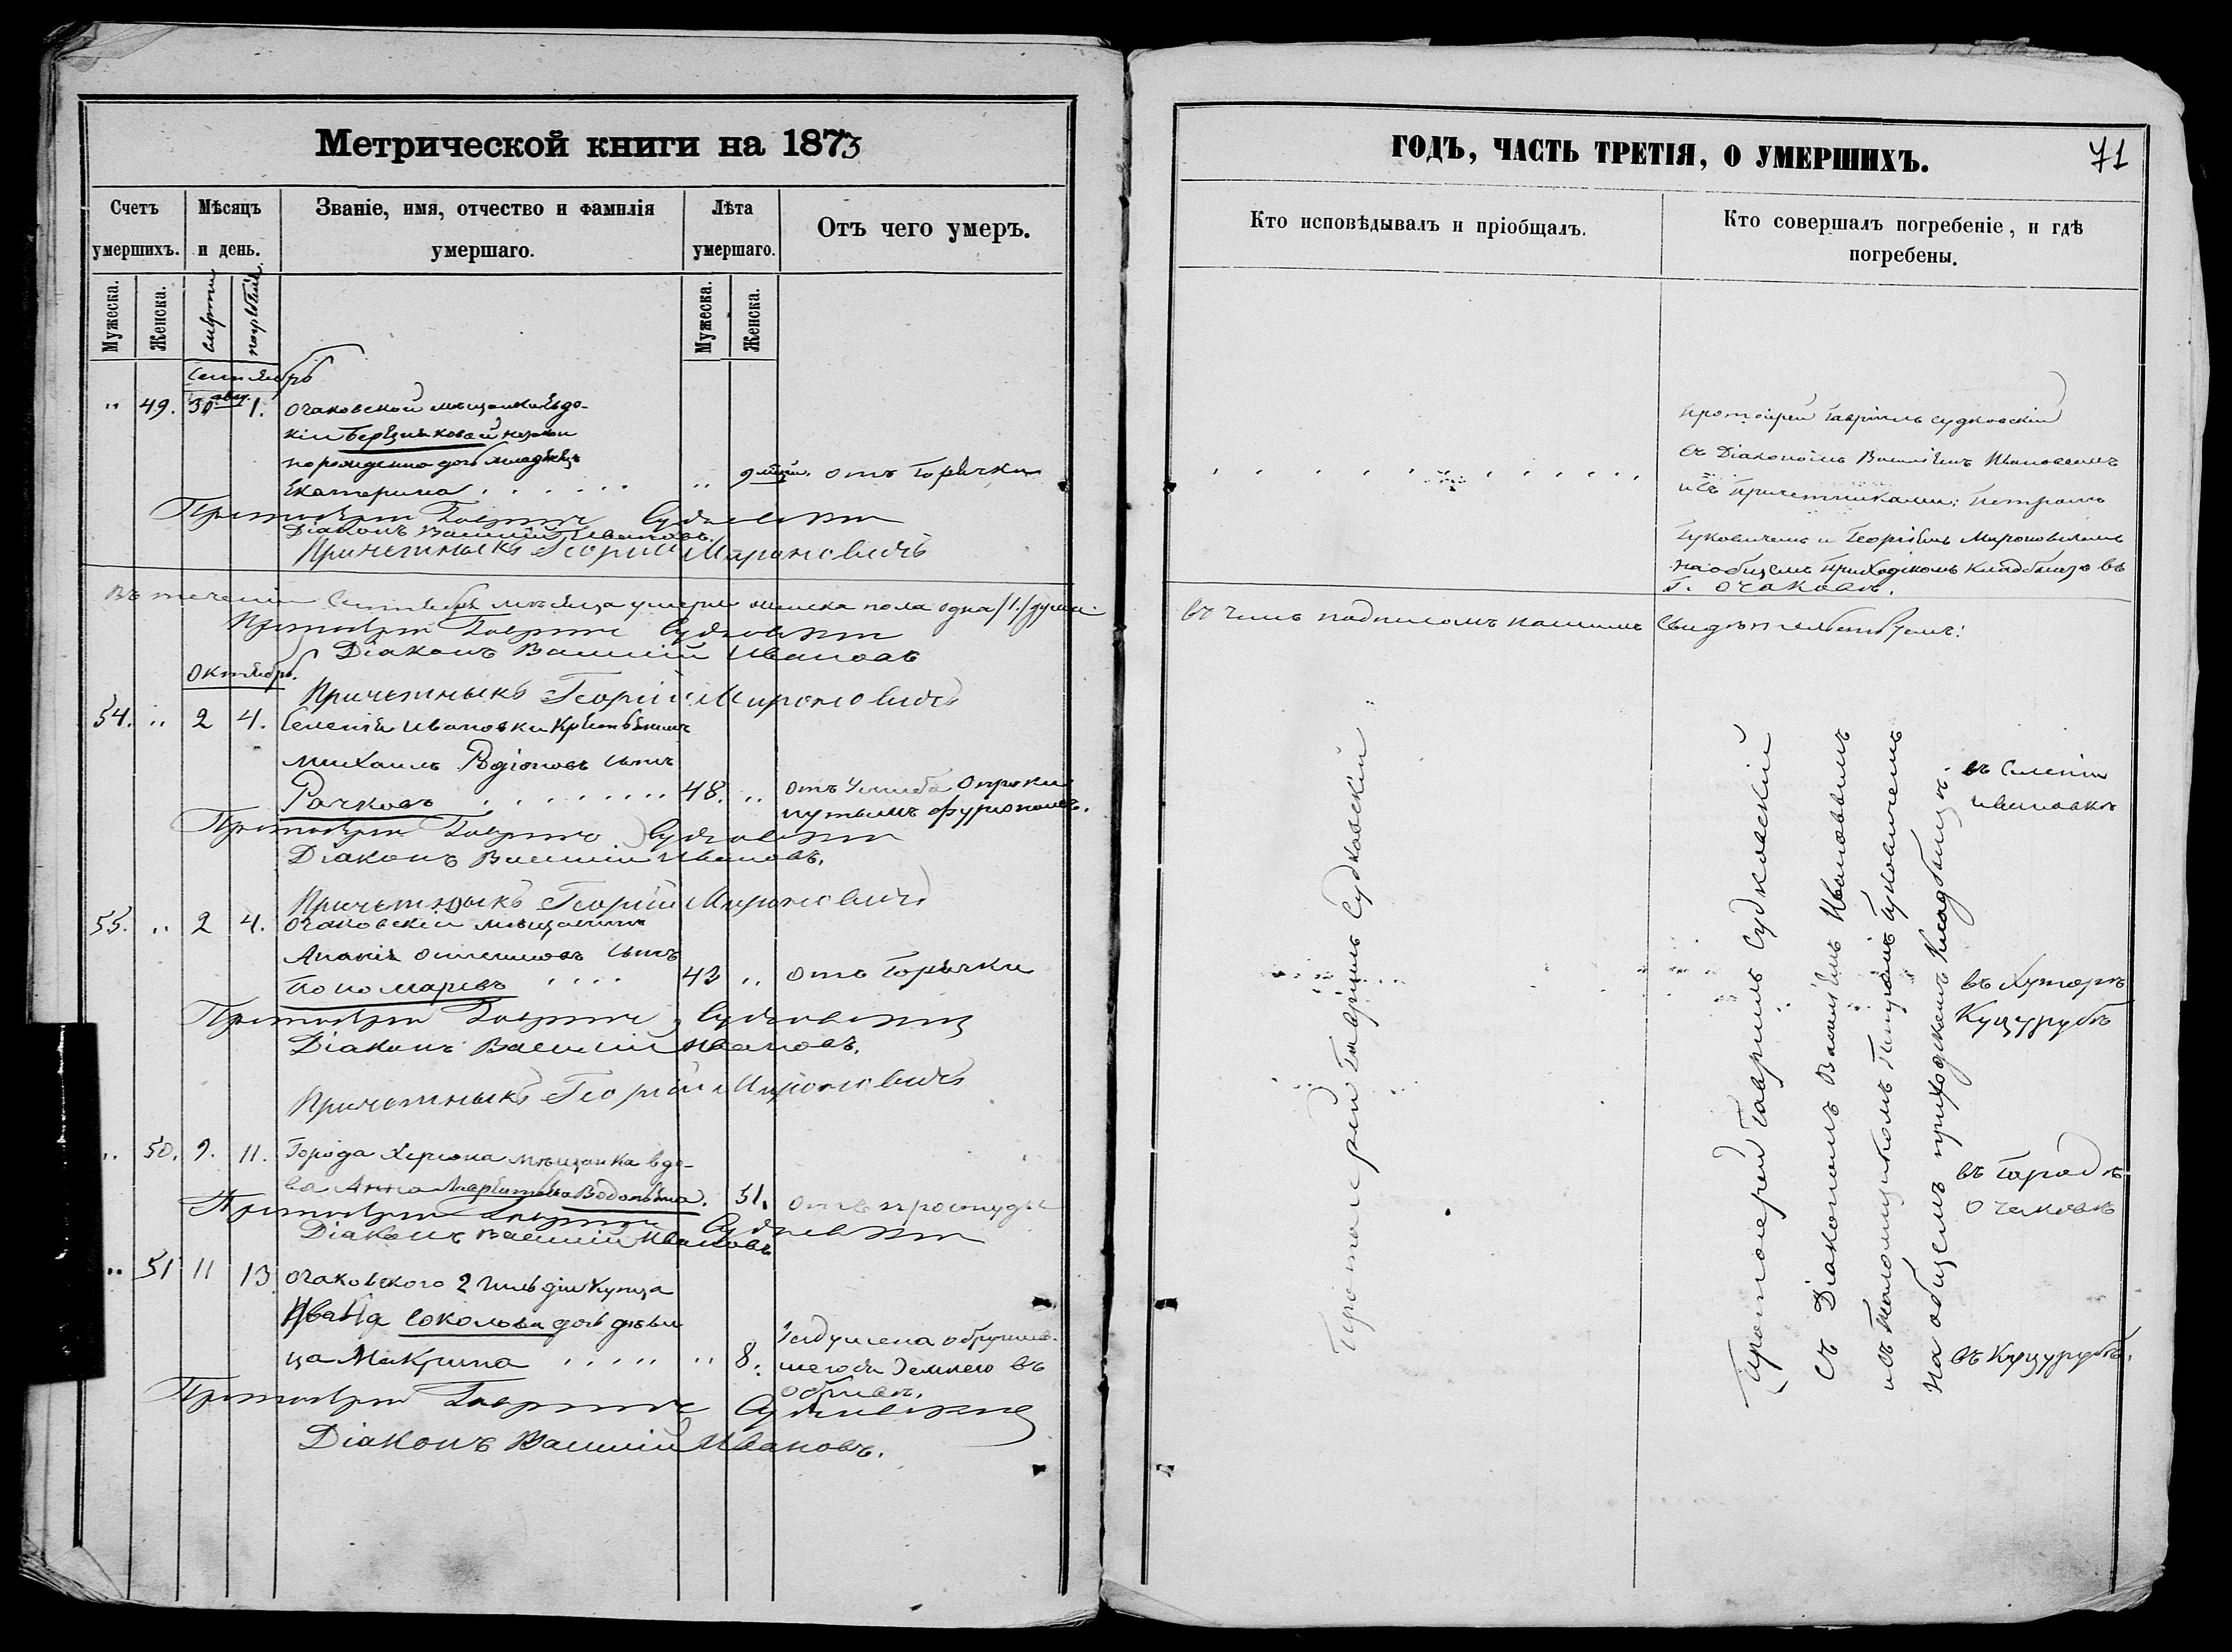 Метрической книги на 1873
Счетъ умершихъ.
Мѣсяцъ и день.
Званіе, имя, отчество и фамилія умершаго.
Лѣта умершаго.
Отъ чего умеръ.
Мужеска.
Женска.
смерти
погребенія.
Мужеска.
Женска.
Сентябрь
" 49. 30 авг. 1. Очаковской мѣщанки Евдо-
кіи Березняковой незакон
порожденна дочь младенецъ
Екатерина . . . . . . " 9 мѣсяц. отъ Горячки
Протоіерей Гавріилъ Судковскій
Діаконъ Василій Ивановъ.
Причетныкъ Георгій Мироновичъ
Въ теченіи Сентября мѣсяца умерло женска пола одна /1./ душа.
Протоіерей Гавріилъ Судковскій
Діаконъ Василій Ивановъ
Причетныкъ Георгій Мироновичъ
Октябрь.
54. " 2 4. Селенія Ивановки Крестьянинъ
Михаилъ Родіоновъ сынъ
Рачковъ . . . . . . . . 48. " отъ Ушиба Опроки
нутымъ фургономъ.
Протоіерей Гавріилъ Судковскій
Діаконъ Василій Ивановъ.
Причетныкъ Георгій Мироновичъ
55. " 2 4. Очаковскій мѣщанинъ
Ананія сынъ
Пономаревъ . . . . 43 " отъ Горячки
Протоіерей Гавріилъ Судковскій
Діаконъ Василій Ивановъ.
Причетныкъ Георгій Мироновичъ
" 50. 9. 11. Города Херсона мѣщанка вдо-
ва Анна Водопьяна. 51. отъ простуды
Протоіерей Гавріилъ Судковскій
Діаконъ Василій Ивановъ
" 51 11 13. Очаковского 2 Гильдіи Купца
Ивана Соколова дочь дѣви
ца Макрина . . . . . " 8. Задушена обрушив-
шегося Землею въ
обрывѣ.
Протоіерей Гавріилъ Судковскій
Діаконъ Василій Ивановъ.
ГОДЪ, ЧАСТЬ ТРЕТІЯ, О УМЕРШИХЪ.
71
Кто исповѣдывалъ и пріобщалъ.
Кто совершалъ погребеніе, и гдѣ погребены.
Протоіерей Гавріилъ Судковскій
съ Діакономъ Василіемъ Ивановымъ
и съ Причетниками: Петромъ
Гуковичемъ и Георгіемъ Мироновичемъ
на общемъ Приходскомъ Кладбищѣ въ
г. Очаковѣ.
въ чемъ подписомъ нашимъ свидѣтельствуемъ:
Протоіерей Гавріилъ Судковскій
Протоіерей Гавріилъ Судковскій
съ Діакономъ Василіемъ Ивановымъ
и съ Пономщикомъ Петромъ Гуковичемъ
на общемъ приходскомъ Кладбищѣ.
въ Селеніи
Ивановкѣ
въ Хуторѣ
Куцурубѣ
въ Городѣ
Очаковѣ
въ Куцурубѣ.